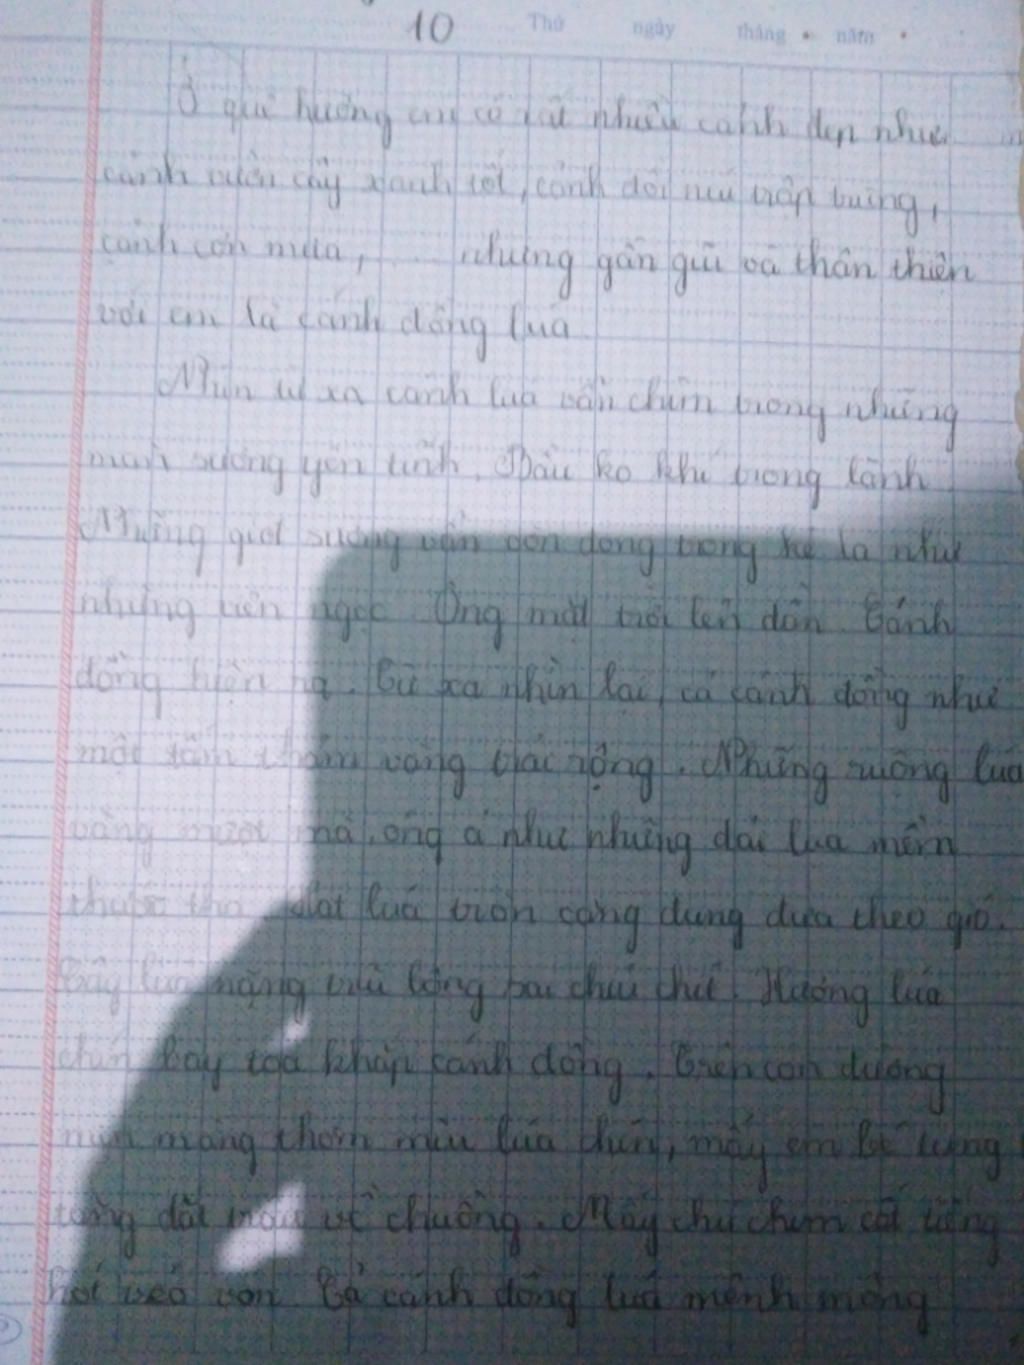 10 Thứ ngày tháng năm
Ở quê hương em có rất nhiều cảnh đẹp như
cảnh vườn cây xanh tốt, cảnh đồi núi trập trùng,
cảnh cơn mưa, ... nhưng gần gũi và thân thiện
với em là cánh đồng lúa
Nhìn từ xa cánh lúa vẫn chìm trong những
màn sương yên tĩnh. Bầu ko khí trong lành
Những giọt sương vẫn còn đọng trong kẽ lá như
những viên ngọc Ông mặt trời lên dần Cánh
đồng hiện ra. Từ xa nhìn lại, cả cánh đồng như
một tấm thảm vàng trải rộng. Những ruộng lúa
vàng mượt mà, óng ả như những dải lụa mềm
thướt tha Hạt lúa tròn căng đung đưa theo gió.
Cây lúa nặng trĩu bông chíu chít. Hương lúa
chín bay toả khắp cánh đồng. Trên con đường
mang thơm mùi lúa chín, mấy em bé tung
tăng dắt trâu về chuồng. Mấy chú chim cất tiếng
hót véo von Cả cánh đồng lúa mênh mông